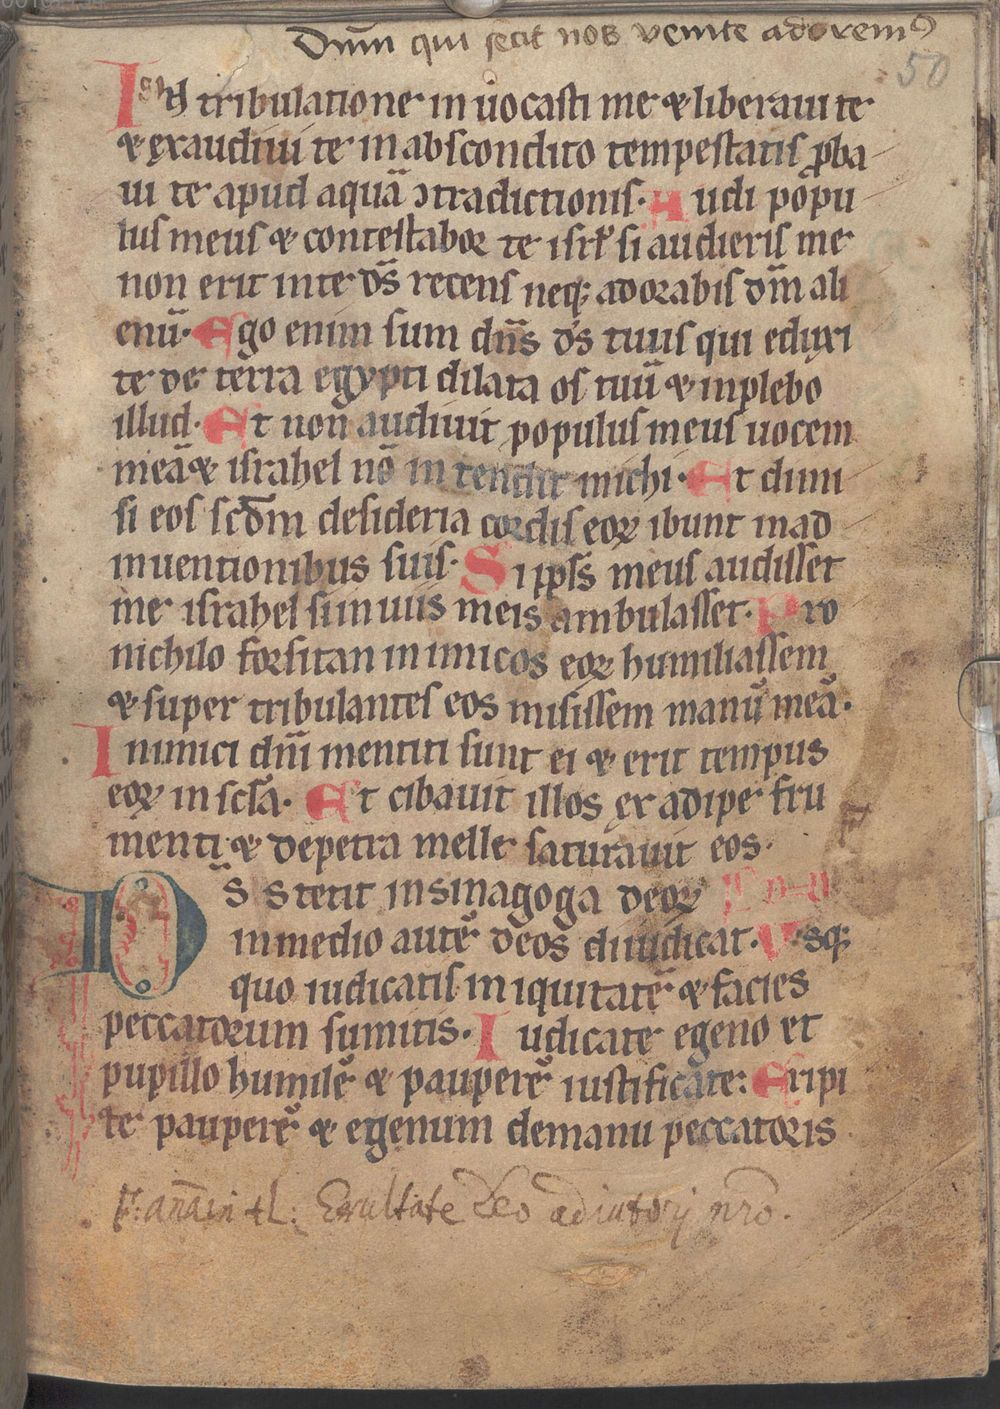 Dnm̄ qui fecit nos venite adorem⁹
50
In tribulatione inuocasti me & liberaui te
& exaudiui te in abscondito tempestatis ꝓba
ui te apud aquā ↄtradictionis. Audi popu
lus meus & contestabor te isrł si audieris me
non erit in te d̄s recens neq; adorabis dm̄ ali
enū. Ego enim sum dn̄s d̄s tuus qui eduxi
te de terra egypti dilata os tuū & inplebo
illud. Et non audiuit populus meus uocem
meā & israhel nō intendit michi. Et dimi
si eos scd̄m desideria cordis eoꝝ ibunt in ad
inuentionibus suis. Si ppl̄s meus audisset
me israhel si in uiis meis ambulasset. Pro
nichilo forsitan inimicos eoꝝ humiliassem
& super tribulantes eos misissem manū meā.
Inimici dn̄i mentiti sunt ei & erit tempus
eoꝝ in sc̄l̄a. Et cibauit illos ex adipe fru
menti & de petra melle saturauit eos.
D̄s stetit in sinagoga deoꝝ
in medio autē deos diiudicat. Vsq;
quo iudicatis iniquitatē & facies
peccatorum sumitis. Iudicate egeno et
pupillo humilē & pauperē iustificate: Eripi
te pauperē & egenum de manu peccatoris
Exultate Deo adiutorj nr̄o.